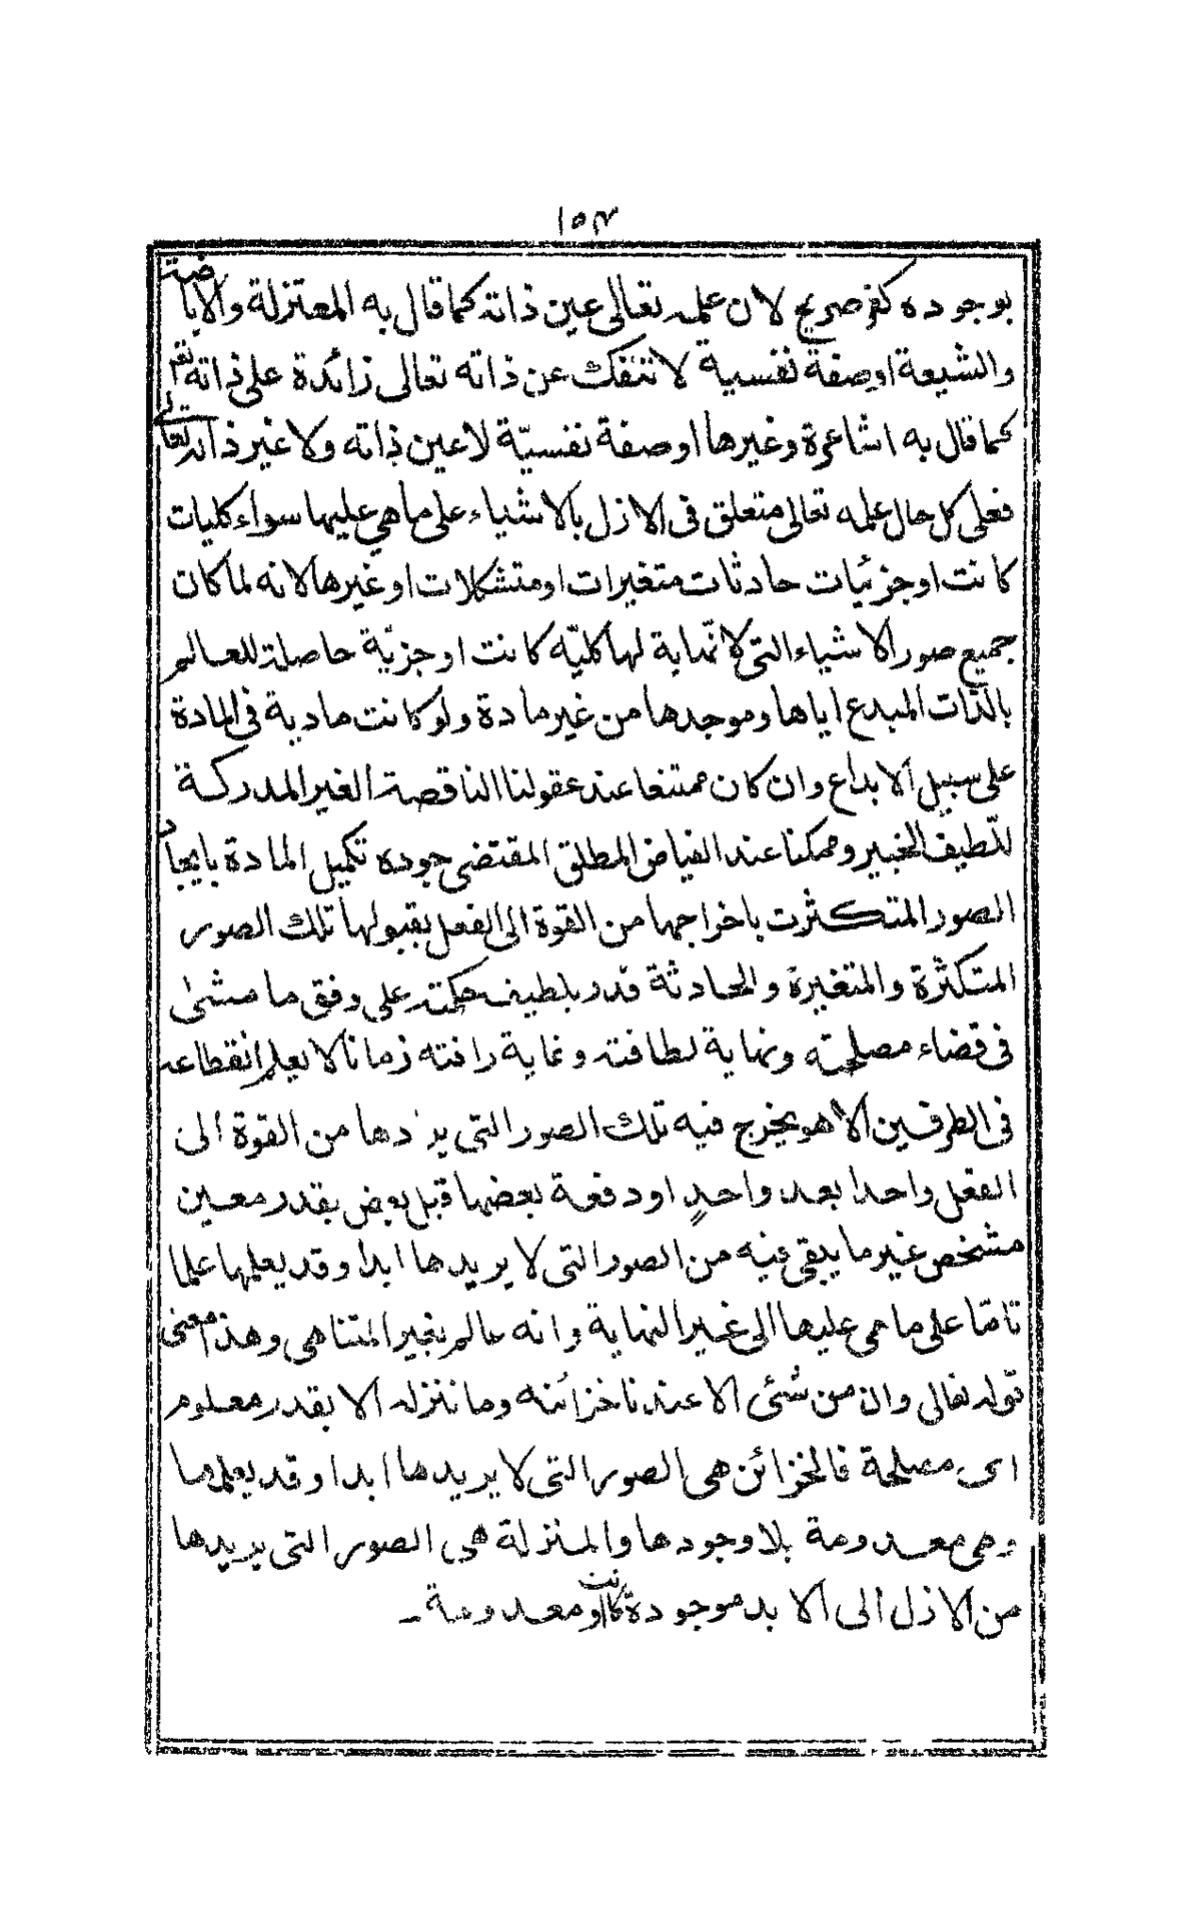 ١٥٣
بوجوده كفر صريح لان علمه تعالى عين ذاته كما قال به المعتزلة والاباضية
والشيعة او صفة نفسية لا تنفك عن ذاته تعالى زائدة على ذاته
كما قال به اشاعرة وغيرها او صفة نفسيّة لا عين ذاته ولا غير ذاته تعالى
فعلى كل حال علمه تعالى متعلق فى الازل بالاشياء على ما هي عليها سواء كليات
كانت او جزئيات حادثات متغيرات او متشكلات او غيرها لانه لما كان
جميع صور الاشياء التى لا نهاية لها كليّه كانت او جزيّة حاصلة للعالم
بالذات المبدع اياها وموجدها من غير مادة ولو كانت مادية فى المادة
على سبيل الابداع وان كان ممتنعا عند عقولنا الناقصة الغير المدركة
للّطيف الخبير وممكنا عند الفياض المطلق المقتضى جوده تكميل المادة بايجاد
الصور المتكثرت باخراجها من القوة الى الفعل بقبولها تلك الصور
المتكثرة والمتغيرة والحادثة قدر بلطيف حكمته على وفق ما مشى
فى قضاء مصلحته ونهاية لطافته وغاية رافته زمانا لا يعلم انقطاعه
فى الطرفين الا هو يخرج فيه تلك الصور التى يردها من القوة الى
الفعل واحدا بعد واحدٍ او دفعة بعضها قبل بعض بقدر معين
مشخص غير ما يبقى فيه من الصور التى لا يريدها ابدا وقد يعلمها علما
تامّا على ما هى عليها الى غير النهاية وانه عالم بغير المتناهى وهذا معنى
قوله تعالى وان من شئى الا عندنا خزائنه وما ننزله الا بقدر معلوم
اى مصلحة فالخزائن هى الصور التى لا يريدها ابدا وقد يعلمها
وهى معدومة بلا وجودها والمنزلة هى الصور التى يريدها
من الازل الى الابد موجودة كانت او معدومة ـ